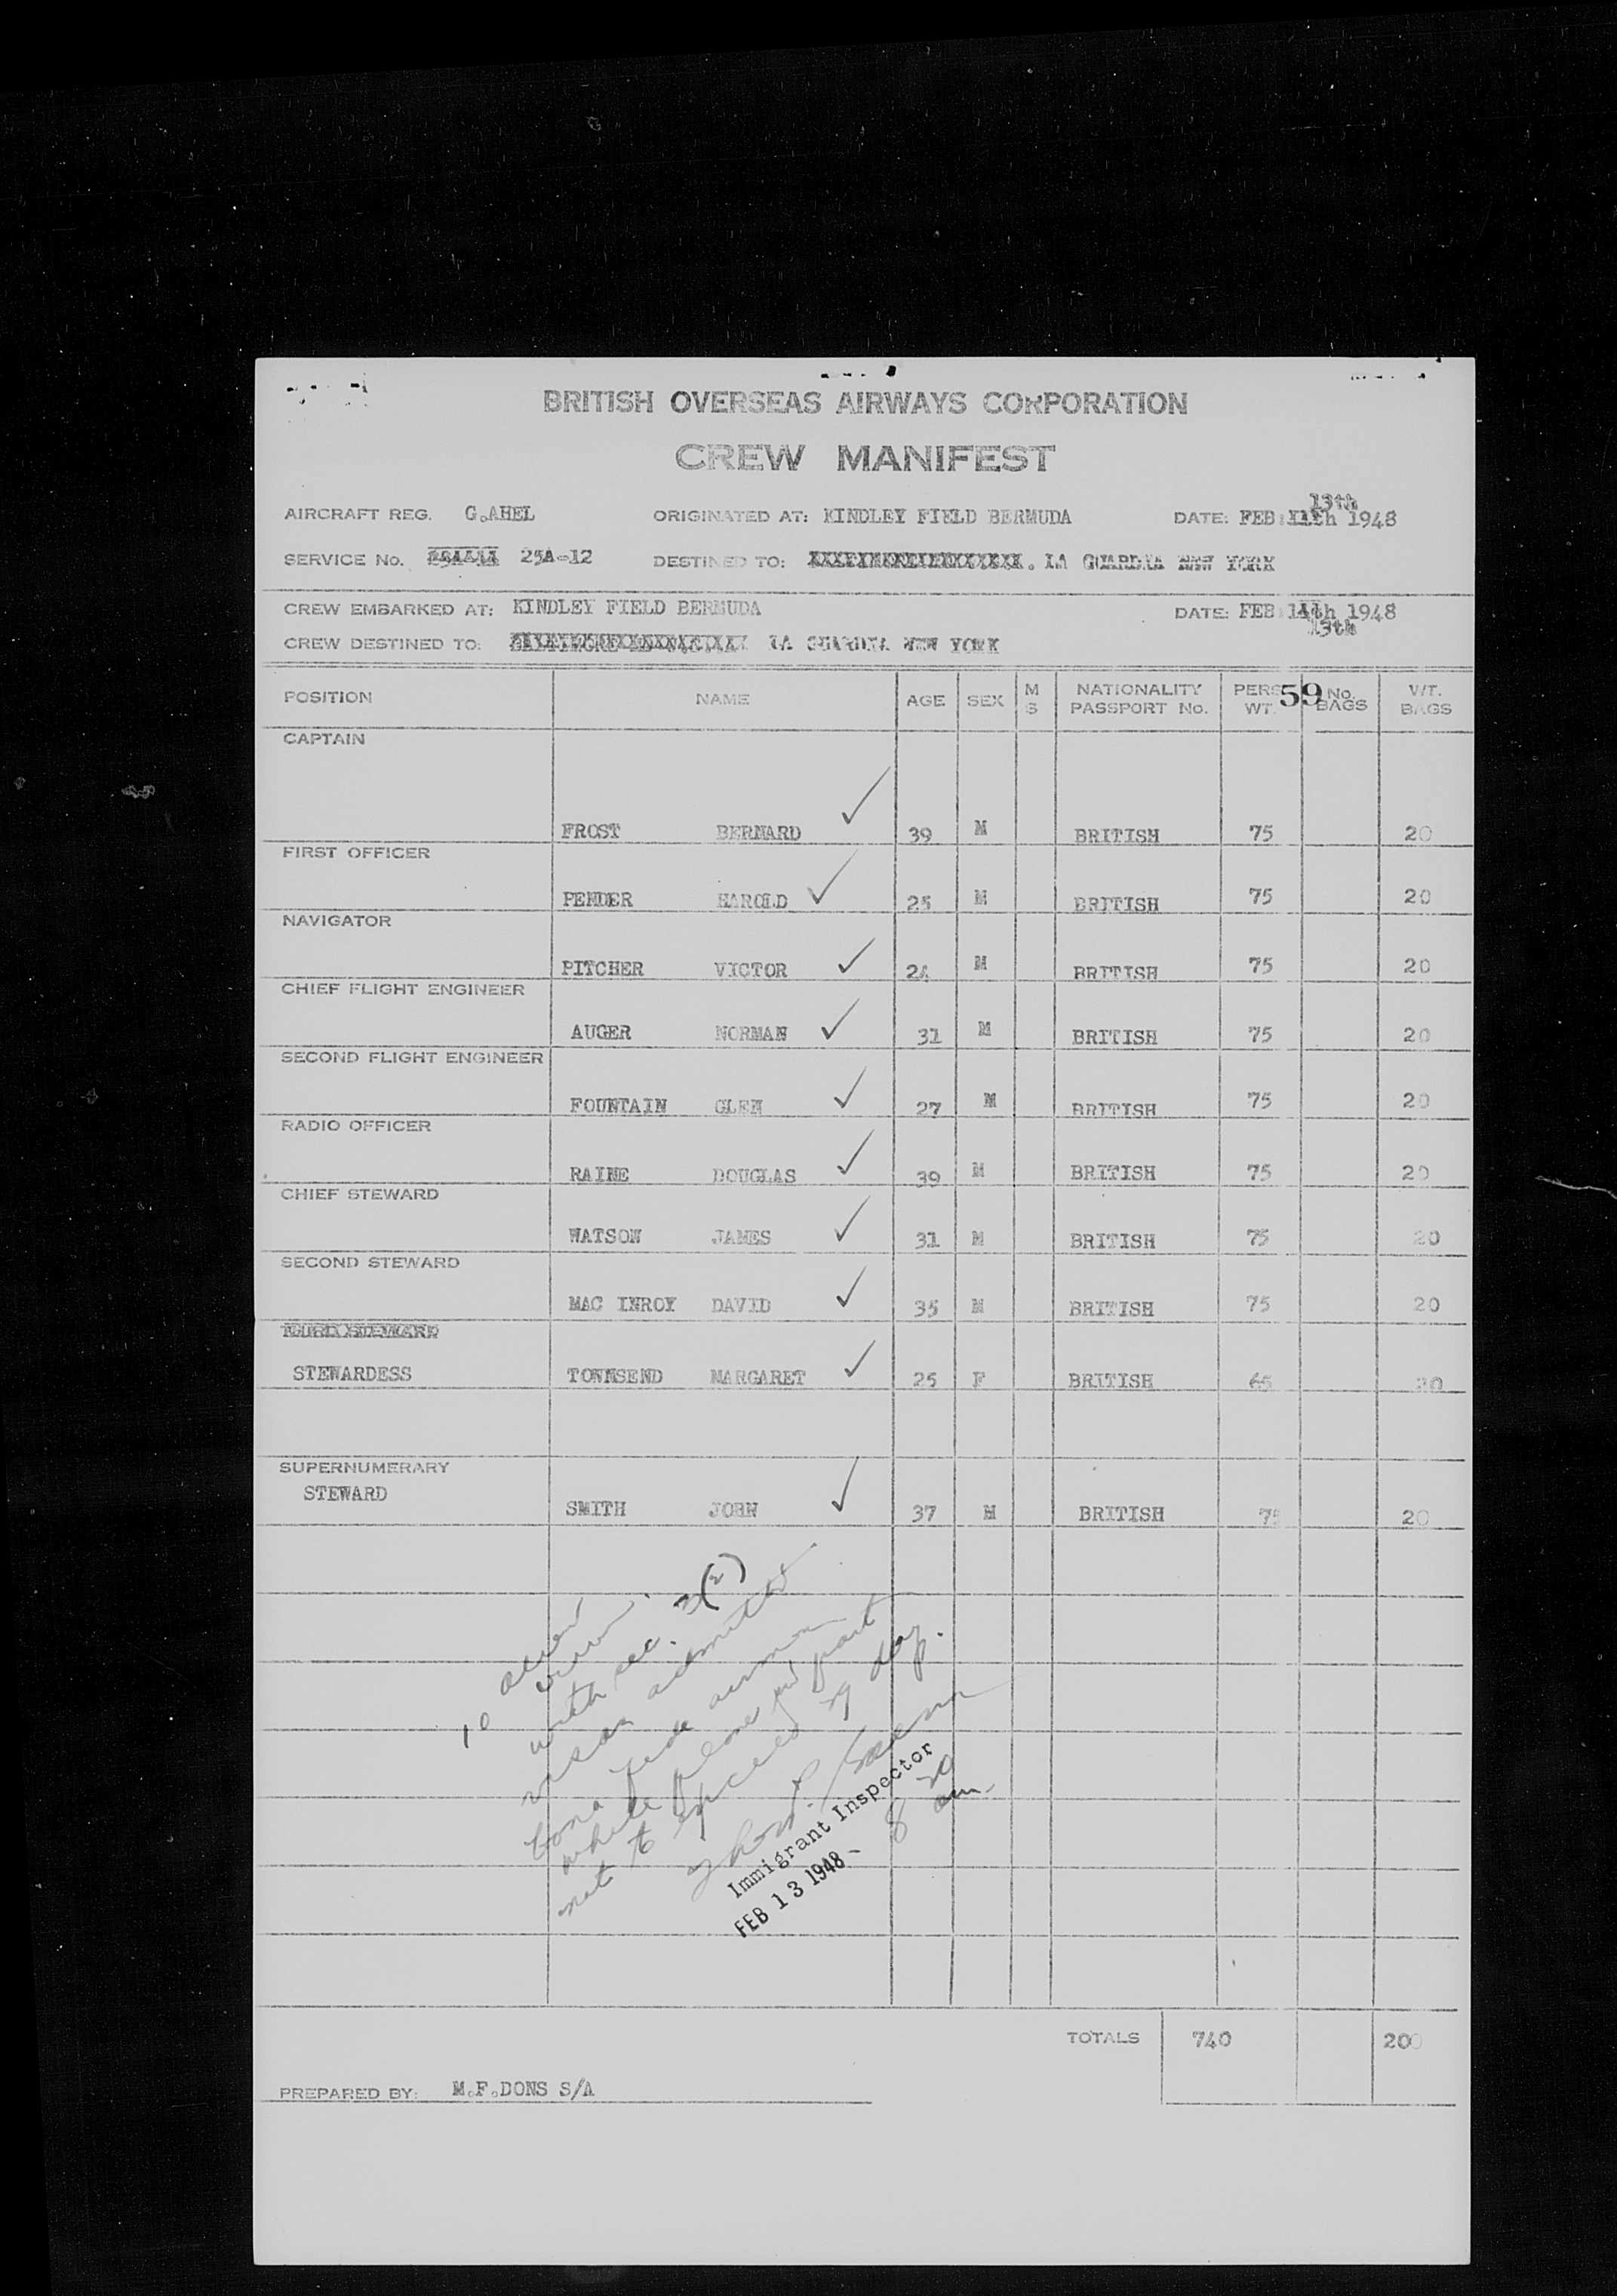 BRITISH OVERSEAS AIRWAYS CORPORATION
CREW MANIFEST
AIRCRAFT REG. G.AHEL ORIGINATED AT: KINDLEY FIELD BERMUDA DATE: FEB 13th 1948
SERVICE No. 25A-12 DESTINED TO: LA GUARDIA NEW YORK
CREW EMBARKED AT: KINDLEY FIELD BERMUDA DATE: FEB 13th 1948
CREW DESTINED TO: LA GUARDIA NEW YORK
POSITION NAME AGE SEX M S NATIONALITY PASSPORT No. PERS WT. 59 No. BAGS WT. BAGS
CAPTAIN
FROST BERNARD 39 M BRITISH 75 20
FIRST OFFICER
PENDER HAROLD 25 M BRITISH 75 20
NAVIGATOR
PITCHER VICTOR 24 M BRITISH 75 20
CHIEF FLIGHT ENGINEER
AUGER NORMAN 31 M BRITISH 75 20
SECOND FLIGHT ENGINEER
FOUNTAIN GLEN 27 M BRITISH 75 20
RADIO OFFICER
RAINE DOUGLAS 39 M BRITISH 75 20
CHIEF STEWARD
WATSON JAMES 31 M BRITISH 75 20
SECOND STEWARD
MAC INROY DAVID 35 M BRITISH 75 20
THIRD STEWARD
STEWARDESS TOWNSEND MARGARET 25 F BRITISH 65 20
SUPERNUMERARY
STEWARD
SMITH JOHN 37 M BRITISH 75 20
10 alien
crew
with sec. 3(2)
visas admitted
bona fide airmen
while plane in port
not to exceed 29 days.
Immigrant Inspector
FEB 13 1948 - 8 20 am
TOTALS 740 200
PREPARED BY: M.F.DONS S/A